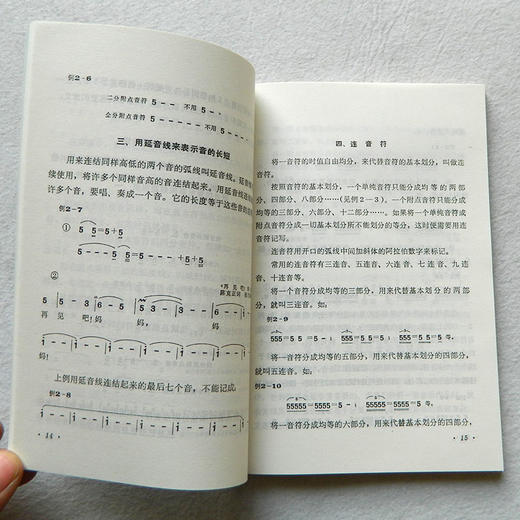 例2-6
二分附点音符 5 - - 不用 5 - ·
全分附点音符 5 - - - - - 不用 5 -
三、用延音线来表示音的长短
用来连结同样高低的两个音的弧线叫延音线。延音
续使用，将许多个同样音高的音连结起来。用延音线连
许多个音，要唱、奏成一个音。它的长度等于这些音的
例2-7
① 5 5=5·=5+5
5---5---=5---+5---
②
《再见吧
薛克正词
5 5·3 5 3
再 见 吧！妈 妈，
妈！
上例用延音线连结起来的最后七个音，不能记成：
例2-8
· 14 ·
四、连 音 符
将一音符的时值自由均分，来代替音符的基本划分，叫做连
音符。
按照音符的基本划分，一个单纯音符只能分成均 等 的 两 部
分、四部分、八部分……（见例 2 — 3），一个附点音符只能分成
均等的三部分、六部分、十二部分……。如果将一个单纯音符或
附点音符分成一切基本划分所不能划分的等分，这时便需要用连
音符记写。
连音符用开口的弧线中间加斜体的阿拉伯数字来标记。
常用的连音符有三连音、五连音、六连音、七 连 音、九 连
音、十连音等。
将一个音符分成均等的三部分，用来代替基本 划 分 的 两 部
分，就叫三连音。如：
例2-9
555=5 5=5 - ； 555=5 5=5 等。
将一音符分成均等的五部分，用来代替基本划分的四部分，
就叫五连音。如：
例2-10
55555=5555=5 - ； 55555=5555=5 等。
将一音符分成均等的六部分，用来代替基本划分的四部分，
· 15 ·